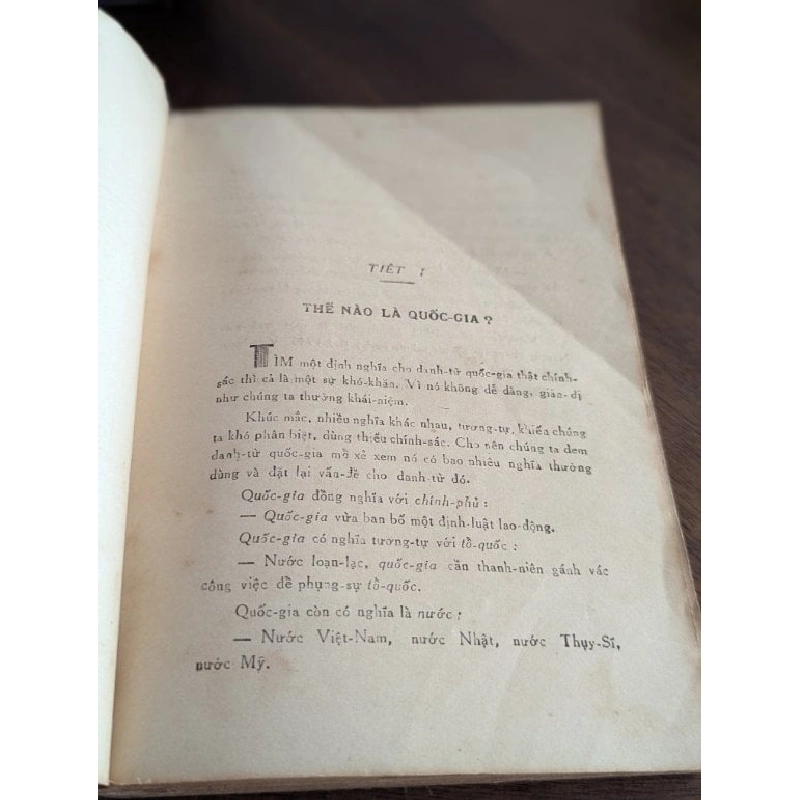 TIẾT I
THẾ NÀO LÀ QUỐC-GIA ?
TÌM một định nghĩa cho danh-từ quốc-gia thật chính-
sác thì cả là một sự khó-khăn. Vì nó không dễ dằng, giản-dị
như chúng ta thường khái-niệm.
Khúc mắc, nhiều nghĩa khác nhau, tương-tự, khiến chúng
ta khó phân biệt, dùng thiếu chính-sác. Cho nên chúng ta đem
danh-từ quốc-gia mổ xẻ xem nó có bao nhiêu nghĩa thường
dùng và đặt lại vấn-đề cho danh-từ đó.
Quốc-gia đồng nghĩa với chính-phủ :
— Quốc-gia vừa ban bố một định-luật lao-động.
Quốc-gia có nghĩa tương-tự với tổ-quốc :
— Nước loạn-lạc, quốc-gia cần thanh-niên gánh vác
công việc để phụng-sự tổ-quốc.
Quốc-gia còn có nghĩa là nước :
— Nước Việt-Nam, nước Nhật, nước Thụy-Sĩ,
nước Mỹ.